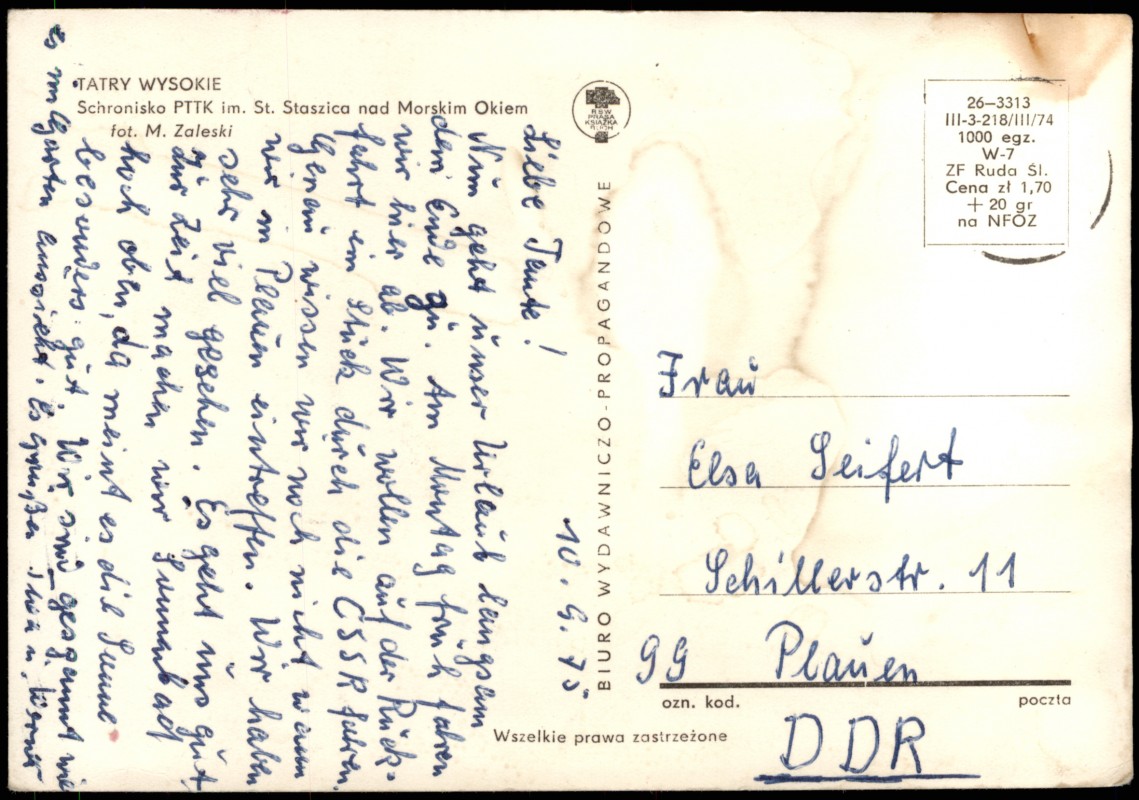 TATRY WYSOKIE
Schronisko PTTK im. St. Staszica nad Morskim Okiem
fot. M. Zaleski
10. 9. 75
Liebe Tante!
Nun geht unser Urlaub langsam
dem Ende zu. Am Montag früh fahren
wir hier ab. Wir wollen auf der Rück-
fahrt ein Stück durch die CSSR fahren.
Genau wissen wir noch nicht wann
wir in Plauen eintreffen. Wir haben
sehr viel gesehen. Es geht uns gut
zur Zeit machen wir Sonnenbad
hoch oben, da meint es die Sonne
besonders gut. Wir sind gespannt wie
es im Garten aussieht. Es grüßen u. Werner
RSW
PRASA
KSIĄŻKA
RUCH
BIURO WYDAWNICZO-PROPAGANDOWE
26—3313
III-3-218/III/74
1000 egz.
W-7
ZF Ruda Śl.
Cena zł 1,70
+ 20 gr
na NFOZ
Frau
Elsa Seifert
Schillerstr. 11
99 Plauen
ozn. kod. poczta
DDR
Wszelkie prawa zastrzeżone